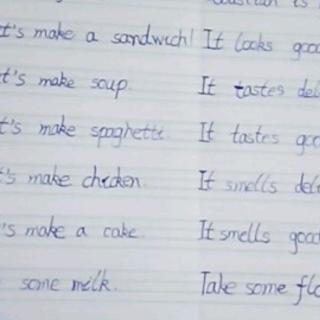 t's make a sandwich! It looks good
t's make soup. It tastes del
t's make spaghetti. It tastes goo
t's make chicken. It smells deli
's make a cake. It smells good
some milk. Take some flo